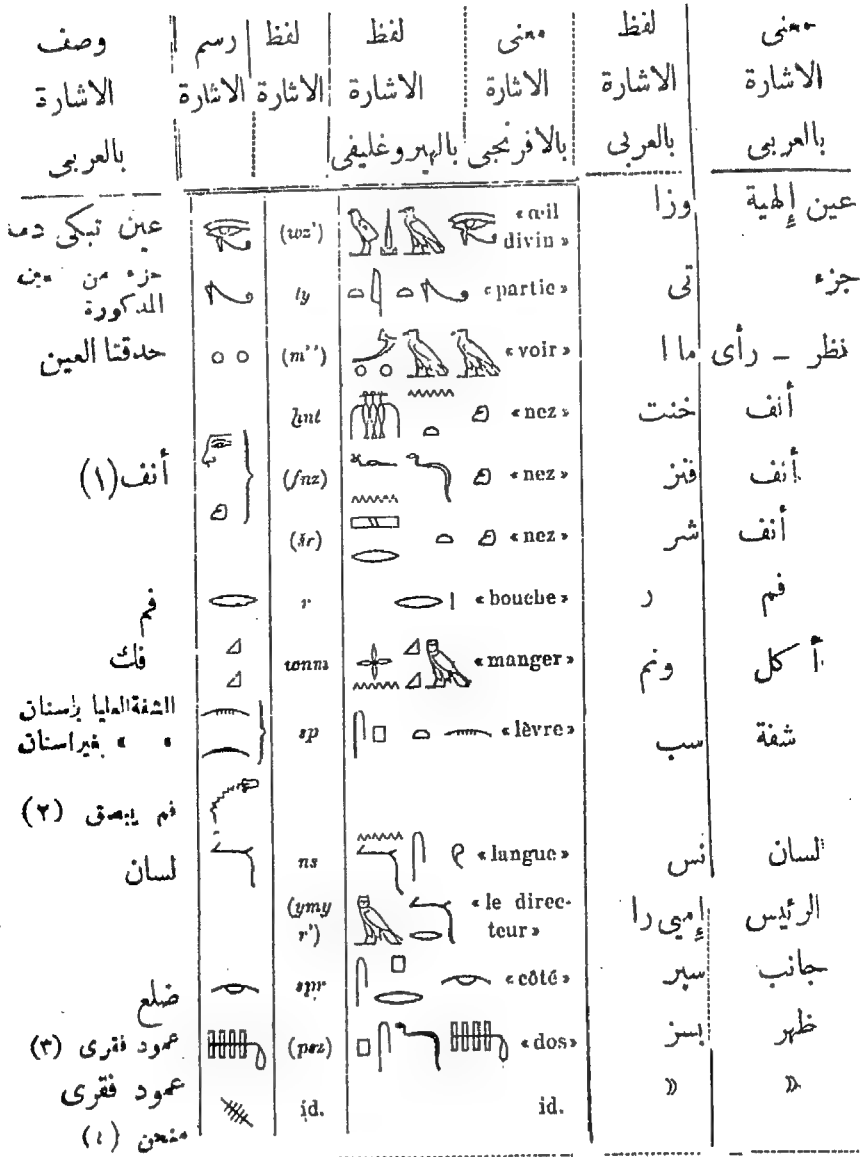 معنى الاشارة بالعربى | لفظ الاشارة بالعربى | معنى الاشارة بالافرنجى | لفظ الاشارة بالهيروغليفى | لفظ الاشارة | رسم الاشارة | وصف الاشارة بالعربى
عين إلهية | وزا | «œil divin» | (wz') | عين تبكى
جزء | تى | «partie» | ty | جزء من المذكورة
نظر — رأى | ماا | «voir» | (m'') | حدقتا العين
أنف | خنت | «nez» | ḫnt
أنف | فنز | «nez» | (fnz) | أنف (١)
أنف | شر | «nez» | (šr)
فم | ر | «bouche» | r | فم
أكل | ونم | «manger» | wnm | فك
شفة | سب | «lèvre» | sp | الشفة العليا بإسنان
» » بغير اسنان
فم يبصق (٢)
لسان | نس | «langue» | ns | لسان
الرئيس | إميى را | «le direc-teur» | (ymy r')
جانب | سپر | «côté» | spr | ضلع
ظهر | بسز | «dos» | (psz) | عمود فقرى (٣)
» | » | id. | id. | عمود فقرى
منحن (٤)